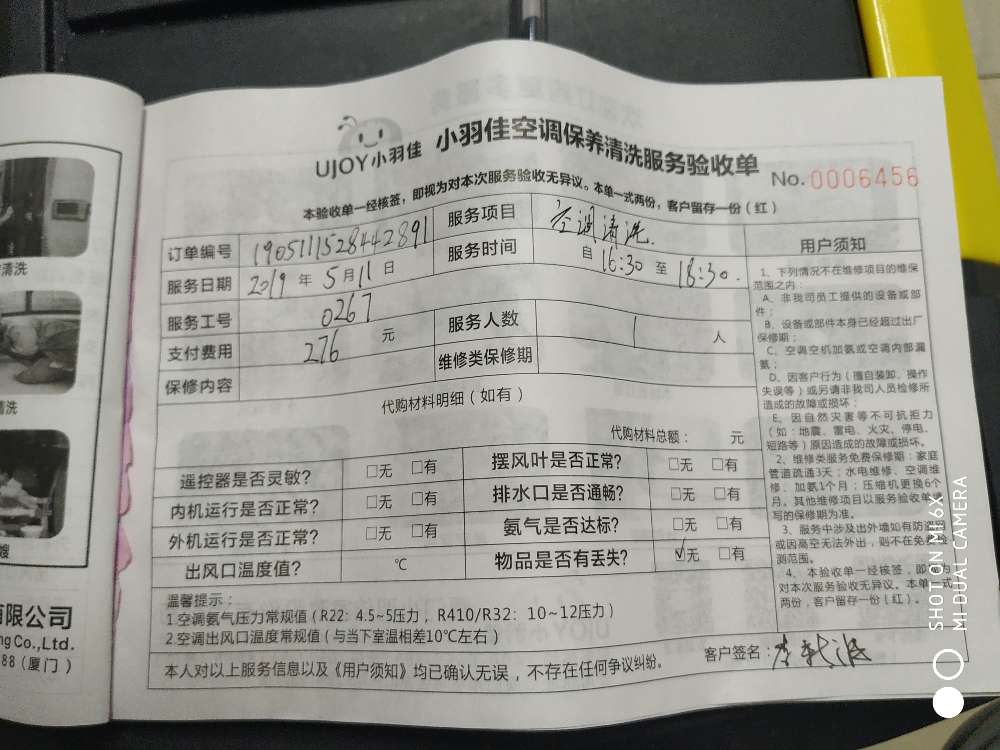 UJOY小羽佳 小羽佳空调保养清洗服务验收单
No. 0006456
本验收单一经核签，即视为对本次服务验收无异议。本单一式两份，客户留存一份（红）
订单编号 1905111528442891 服务项目 空调清洗.
服务日期 2019 年 5 月 11 日 服务时间 自 16:30 至 18:30.
服务工号 0267
支付费用 276 元 服务人数 1 人
保修内容 维修类保修期
代购材料明细（如有）
代购材料总额： 元
遥控器是否灵敏? □无 □有 摆风叶是否正常? □无 □有
内机运行是否正常? □无 □有 排水口是否通畅? □无 □有
外机运行是否正常? □无 □有 氨气是否达标? □无 □有
出风口温度值? ℃ 物品是否有丢失? ☑无 □有
温馨提示：
1.空调氨气压力常规值（R22：4.5~5压力，R410/R32：10~12压力）
2.空调出风口温度常规值（与当下室温相差10℃左右）
本人对以上服务信息以及《用户须知》均已确认无误，不存在任何争议纠纷。
客户签名：
用户须知
1、下列情况不在维修项目的维保
范围之内：
A、非我司员工提供的设备或部
件；
B、设备或部件本身已经超过出厂
保修期；
C、空调空机加氨或空调内部漏
氨；
D、因客户行为（擅自装卸、操作
失误等）或另请非我司人员检修所
造成的故障或损坏；
E、因自然灾害等不可抗拒力
（如：地震、雷电、火灾、停电、
短路等）原因造成的故障或损坏。
2、维修类服务免费保修期：家庭
管道疏通3天；水电维修、空调维
修、加氨1个月；压缩机更换6个
月。其他维修项目以服务验收单
写的保修期为准。
3、服务中涉及出外墙如有防盗网
或因高空无法外出，则不在免费检
测范围。
4、本验收单一经核签，即视为
对本次服务验收无异议。本单一式
两份，客户留存一份（红）。
清洗
清洗
嫂
有限公司
ng Co.,Ltd.
88（厦门）
SHOT ON MI 6X
MI DUAL CAMERA